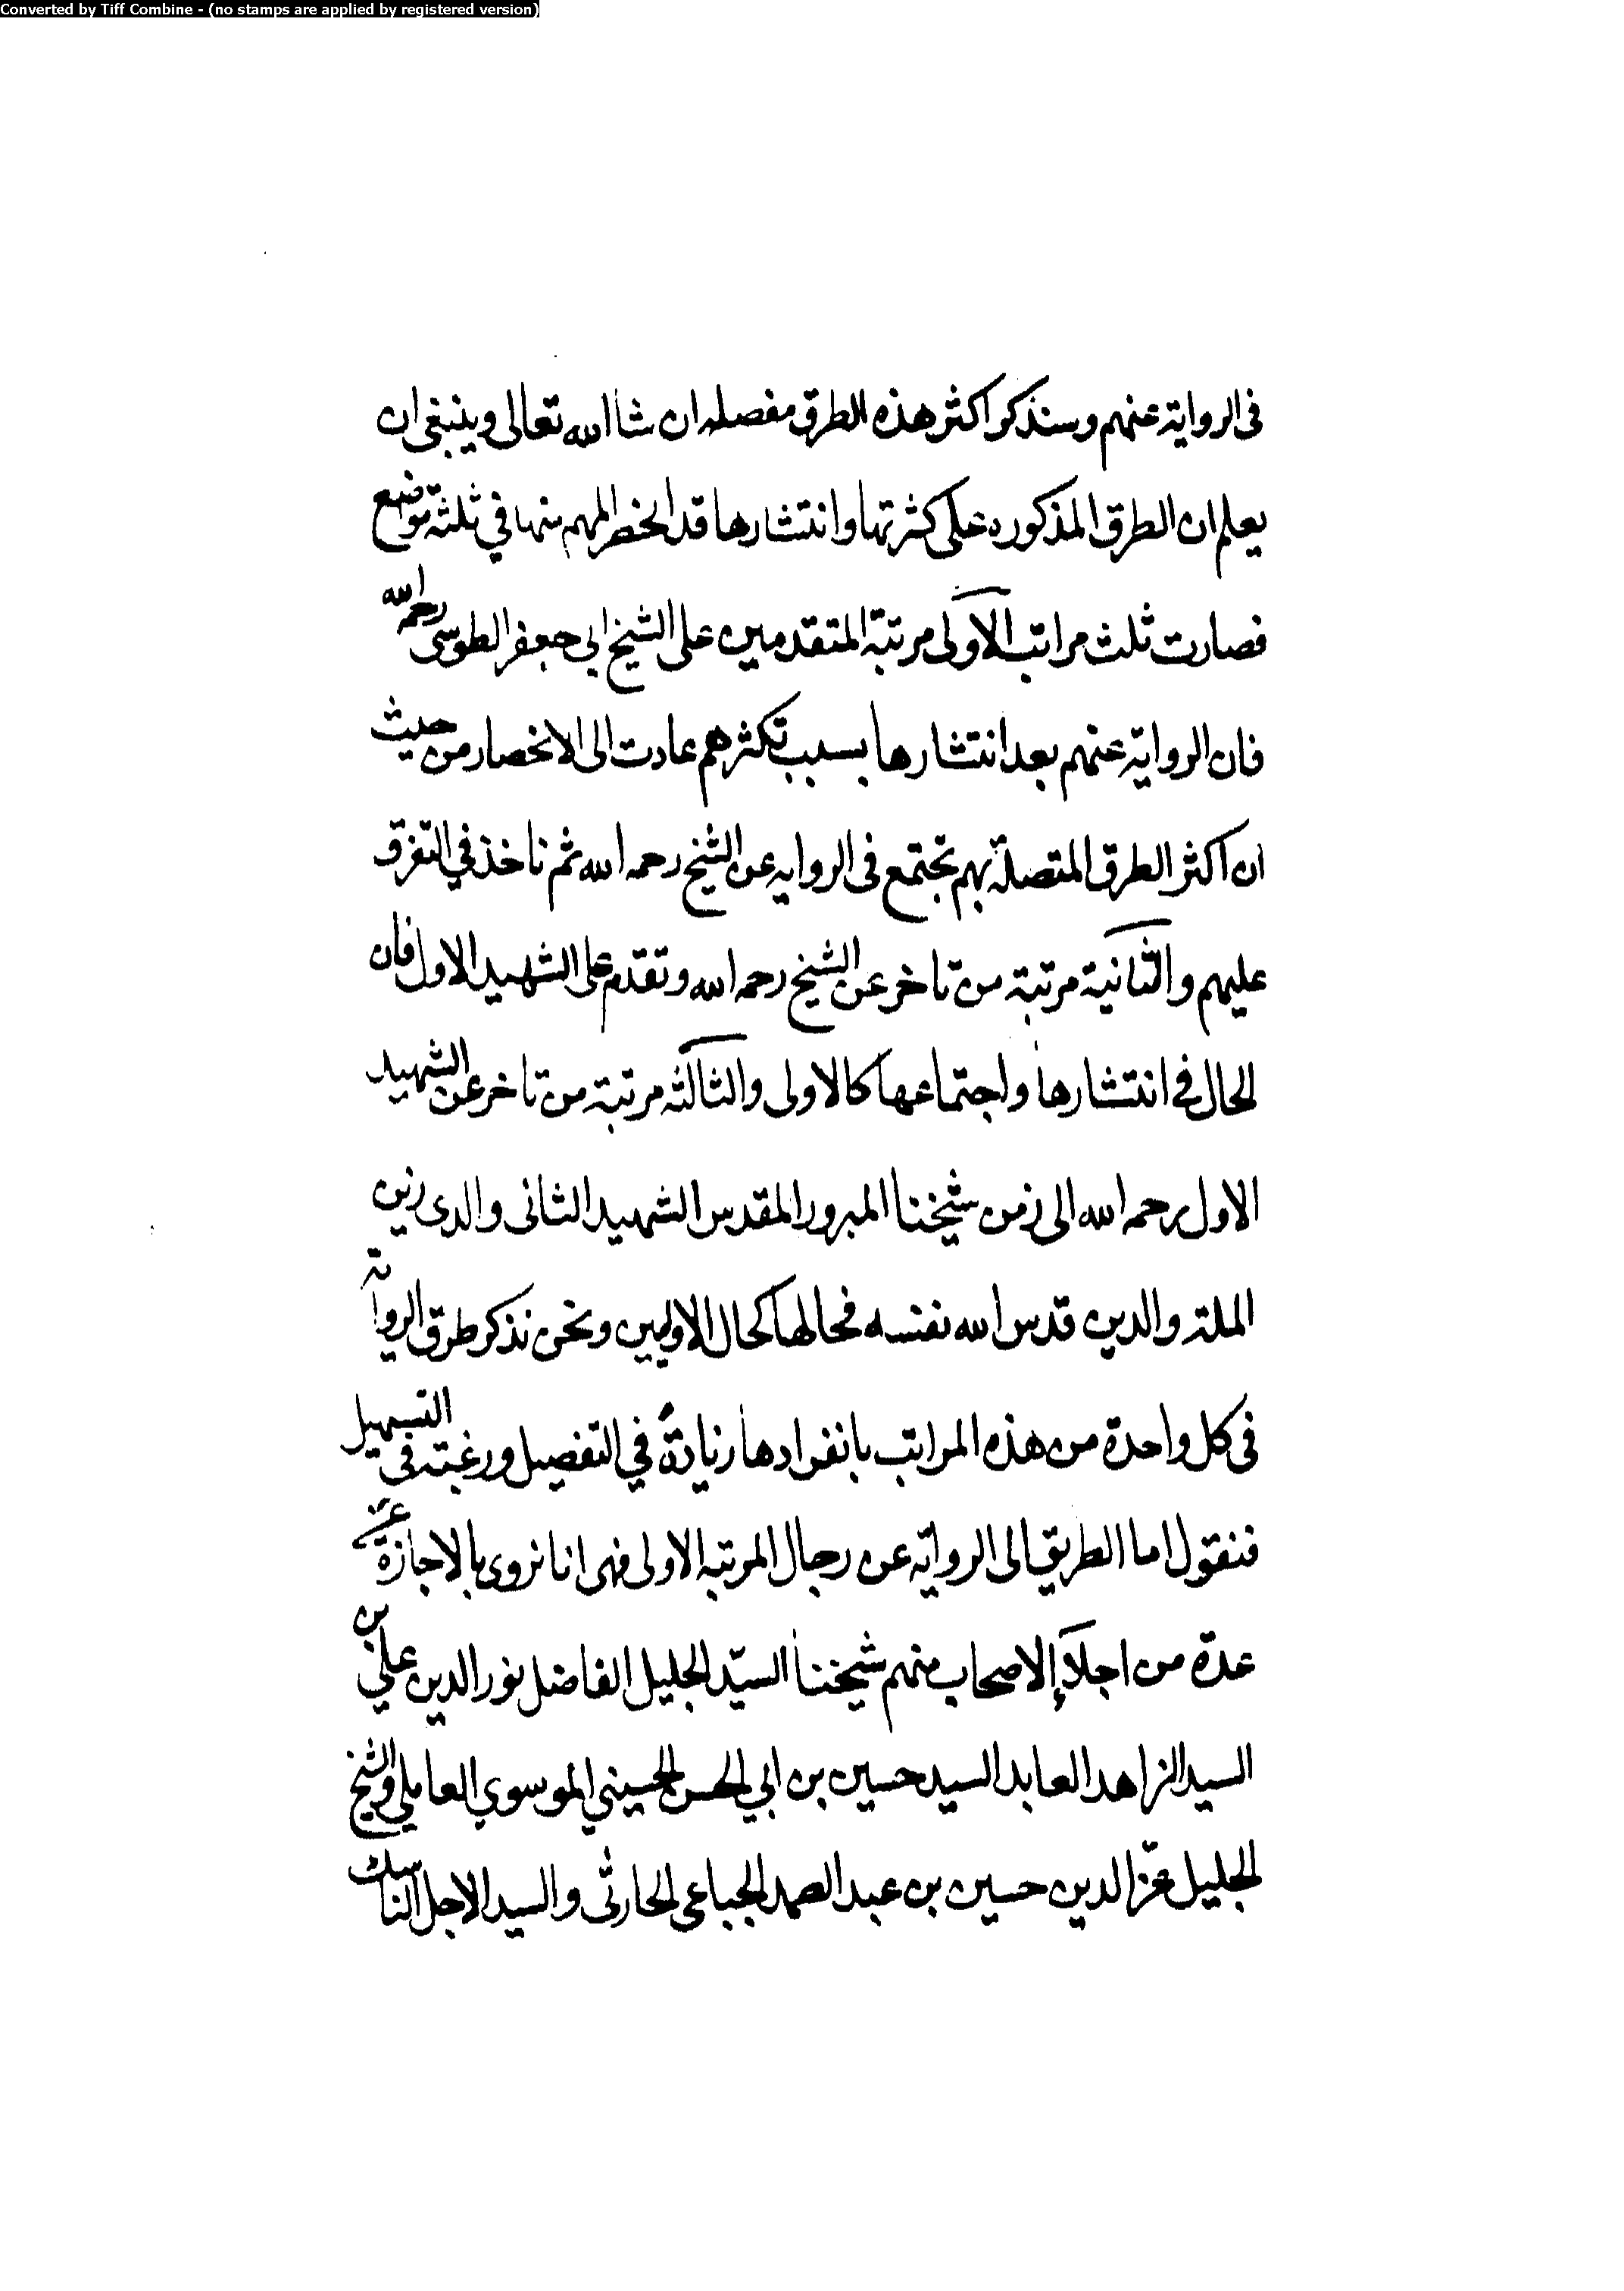 Converted by Tiff Combine - (no stamps are applied by registered version)
فى الرواية عنهم وسنذكر اكثر هذه الطرق مفصله ان شا الله تعالى وينبغى ان
يعلم ان الطرق المذكوره على كثرتها وانتشارها قد انحصر المهم منها في ثلثة مواضع
فصارت ثلث مراتب الآولى مرتبة المتقدمين على الشيخ ابي جعفر الطوسى رحمه الله
فان الرواية عنهم بعد انتشارها بسبب تكثرهم عادت الى الانحصار من حيث
ان اكثر الطرق المتصلة بهم تجتمع فى الروايه عن الشيخ رحمه الله ثم تاخذ في التفرق
عليهم والثانية مرتبة من تاخر عن الشيخ رحمه الله وتقدم على الشهيد الاول فان
الحال في انتشارها واجتماعها كالاولى والثالثه مرتبة من تاخر عن الشهيد
الاول رحمه الله الى زمن شيخنا المبرور المقدس الشهيد الثانى والدى زين
الملة والدين قدس الله نفسه فحالها كحال الاوليين ونحن نذكر طرق الرواية
فى كل واحدة من هذه المراتب بانفرادها زيادةً في التفصيل ورغبته فى التسهيل
فنقول اما الطريق الى الرواية عن رجال المرتبه الاولى فهى انا نروى بالاجازة عن
عدة من اجلآء الاصحاب منهم شيخنا السيّد الجليل الفاضل نور الدين علي بن
السيد الزاهد العابد السيد حسين بن ابي الحسن الحسيني الموسوي العاملي والشيخ
الجليل عزّ الدين حسين بن عبد الصمد الجباعي الحارثى والسيد الاجل الناسك